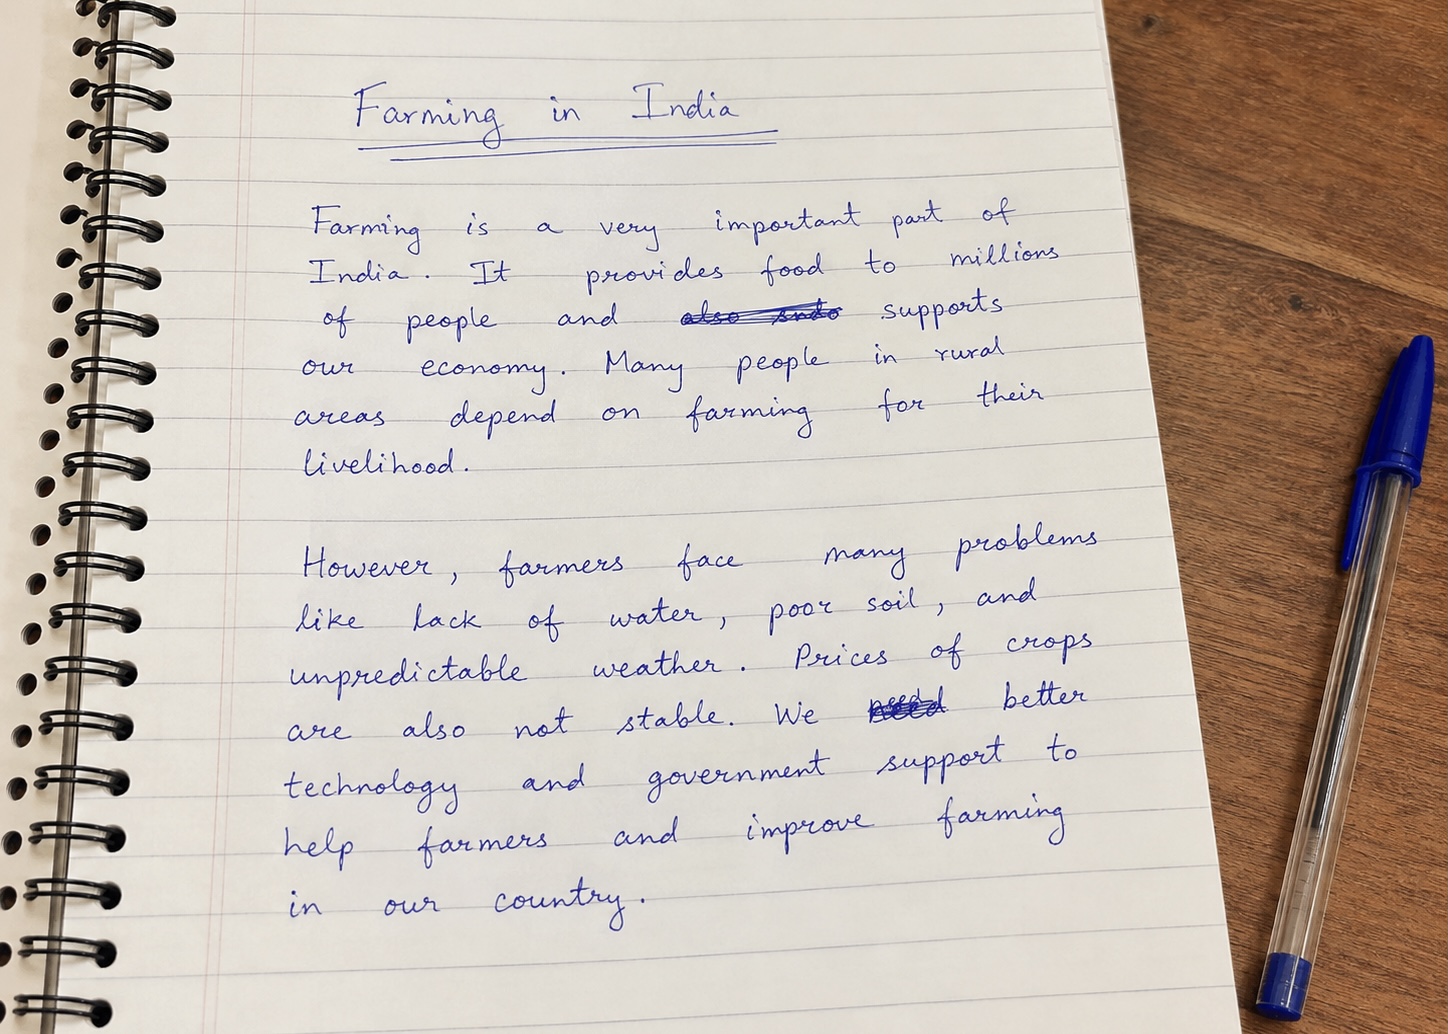 Farming in India
Farming is a very important part of
India. It provides food to millions
of people and supports
our economy. Many people in rural
areas depend on farming for their
livelihood.
However, farmers face many problems
like lack of water, poor soil, and
unpredictable weather. Prices of crops
are also not stable. We need better
technology and government support to
help farmers and improve farming
in our country.